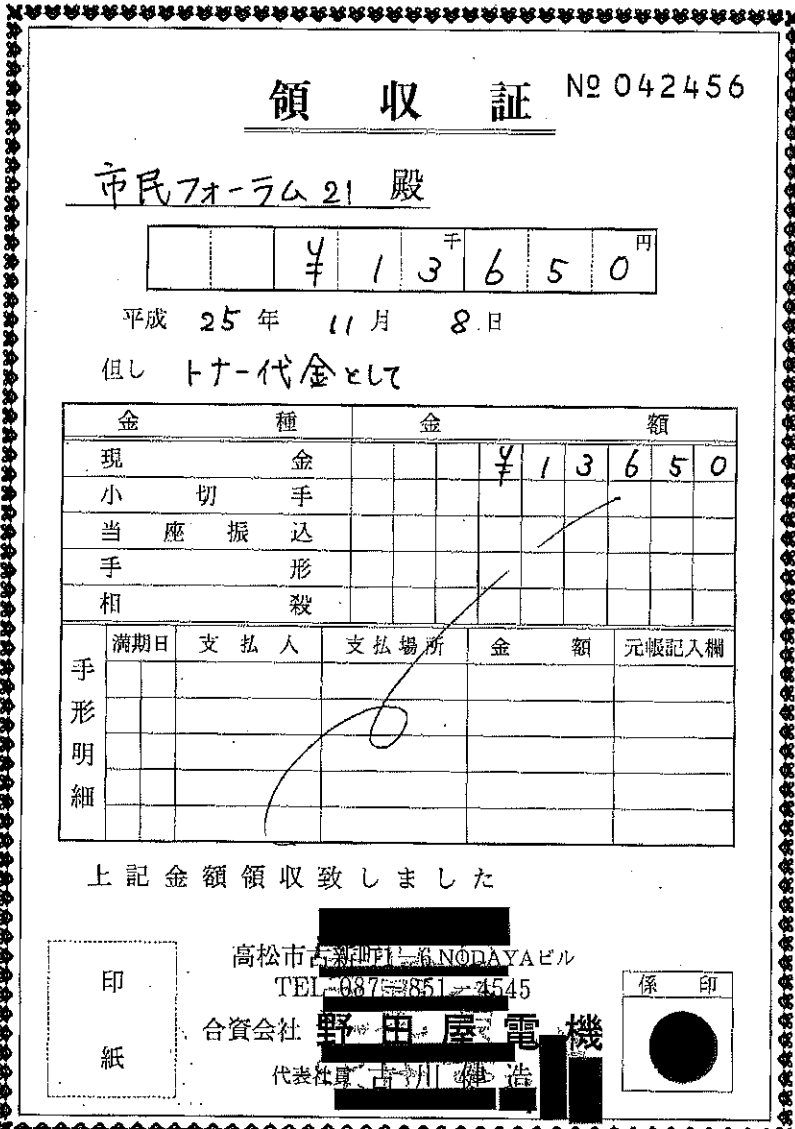 領収証 № 042456
市民フォーラム21 殿
¥13千650円
平成 25年 11月 8日
但し トナー代金として
金種 金額
現金 ¥13650
小切手
当座振込
手形
相殺
手形明細 満期日 支払人 支払場所 金額 元帳記入欄
上記金額領収致しました
高松市古新町 6 NODAYAビル
TEL 087-851-4545
合資会社 野田屋電機
代表社員 古川 健造
印紙
係印